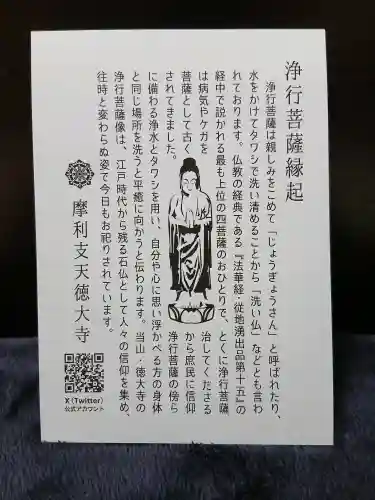 浄行菩薩縁起
浄行菩薩は親しみをこめて「じょうぎょうさん」と呼ばれたり、
水をかけてタワシで洗い清めることから「洗い仏」などとも言わ
れております。仏教の経典である『法華経・従地湧出品第十五』の
経中で説かれる最も上位の四菩薩のおひとりで、とくに浄行菩薩
は病気やケガを
治してくださる
菩薩として古く
から庶民に信仰
されてきました。
浄行菩薩の傍ら
に備わる浄水とタワシを用い、自分や心に思い浮かべる方の身体
と同じ場所を洗うと平癒に向かうと伝わります。当山・徳大寺の
浄行菩薩像は、江戸時代から残る石仏として人々の信仰を集め、
往時と変わらぬ姿で今日もお祀りされています。
摩利支天徳大寺
X（Twitter）
公式アカウント